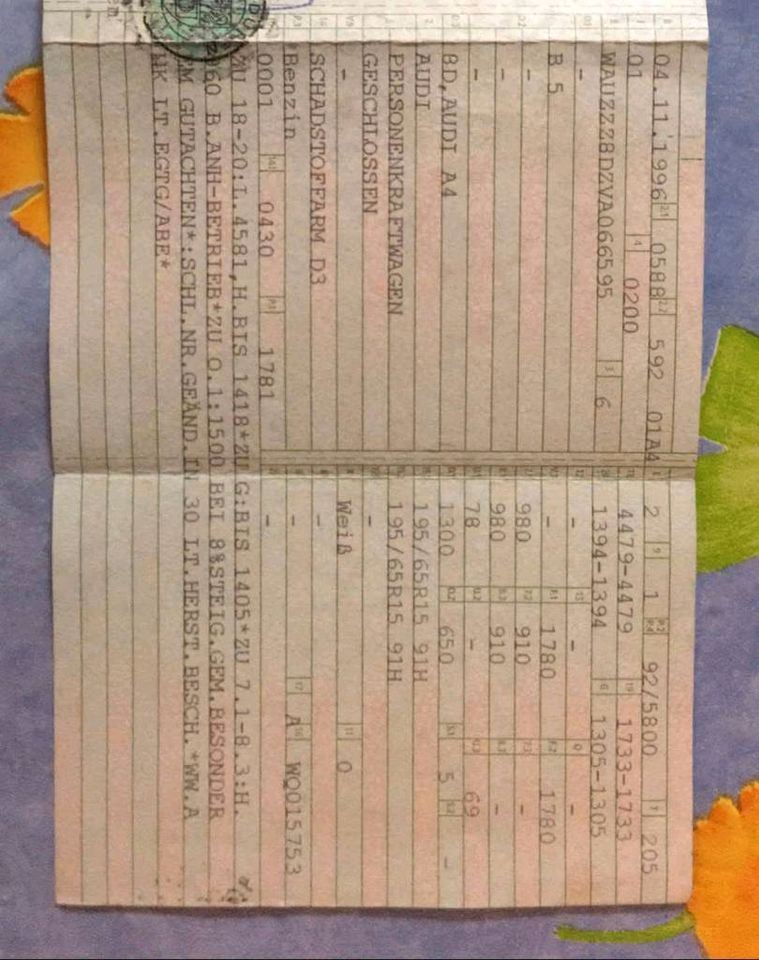 04.11.1996 21 0588 22 592 01A4
01 4 0200
WAUZZZ8DZVA066595 3 6
-
B 5
-
-
-
8D,AUDI A4
AUDI
PERSONENKRAFTWAGEN
GESCHLOSSEN
-
SCHADSTOFFARM D3
Benzin
0001 0430 1781
2 9 1 92/5800 T 205
4479-4479 19 1733-1733
1394-1394 G 1305-1305
- - -
- 1780 1780
980 910 -
980 910 -
78 - 69
1300 650 5 -
195/65R15 91H
195/65R15 91H
-
Weiß 11 0
-
- 17 A 16 WQ015753
-
ZU 18-20:L.4581,H.BIS 1418*ZU G:BIS 1405*ZU 7.1-8.3:H.
960 B.ANH-BETRIEB*ZU O.1:1500 BEI 8%STEIG.GEM.BESONDER
EM GUTACHTEN*:SCHL.NR.GEÄND.IN 30 LT.HERST.BESCH.*WW.A
HK LT.EGTG/ABE*